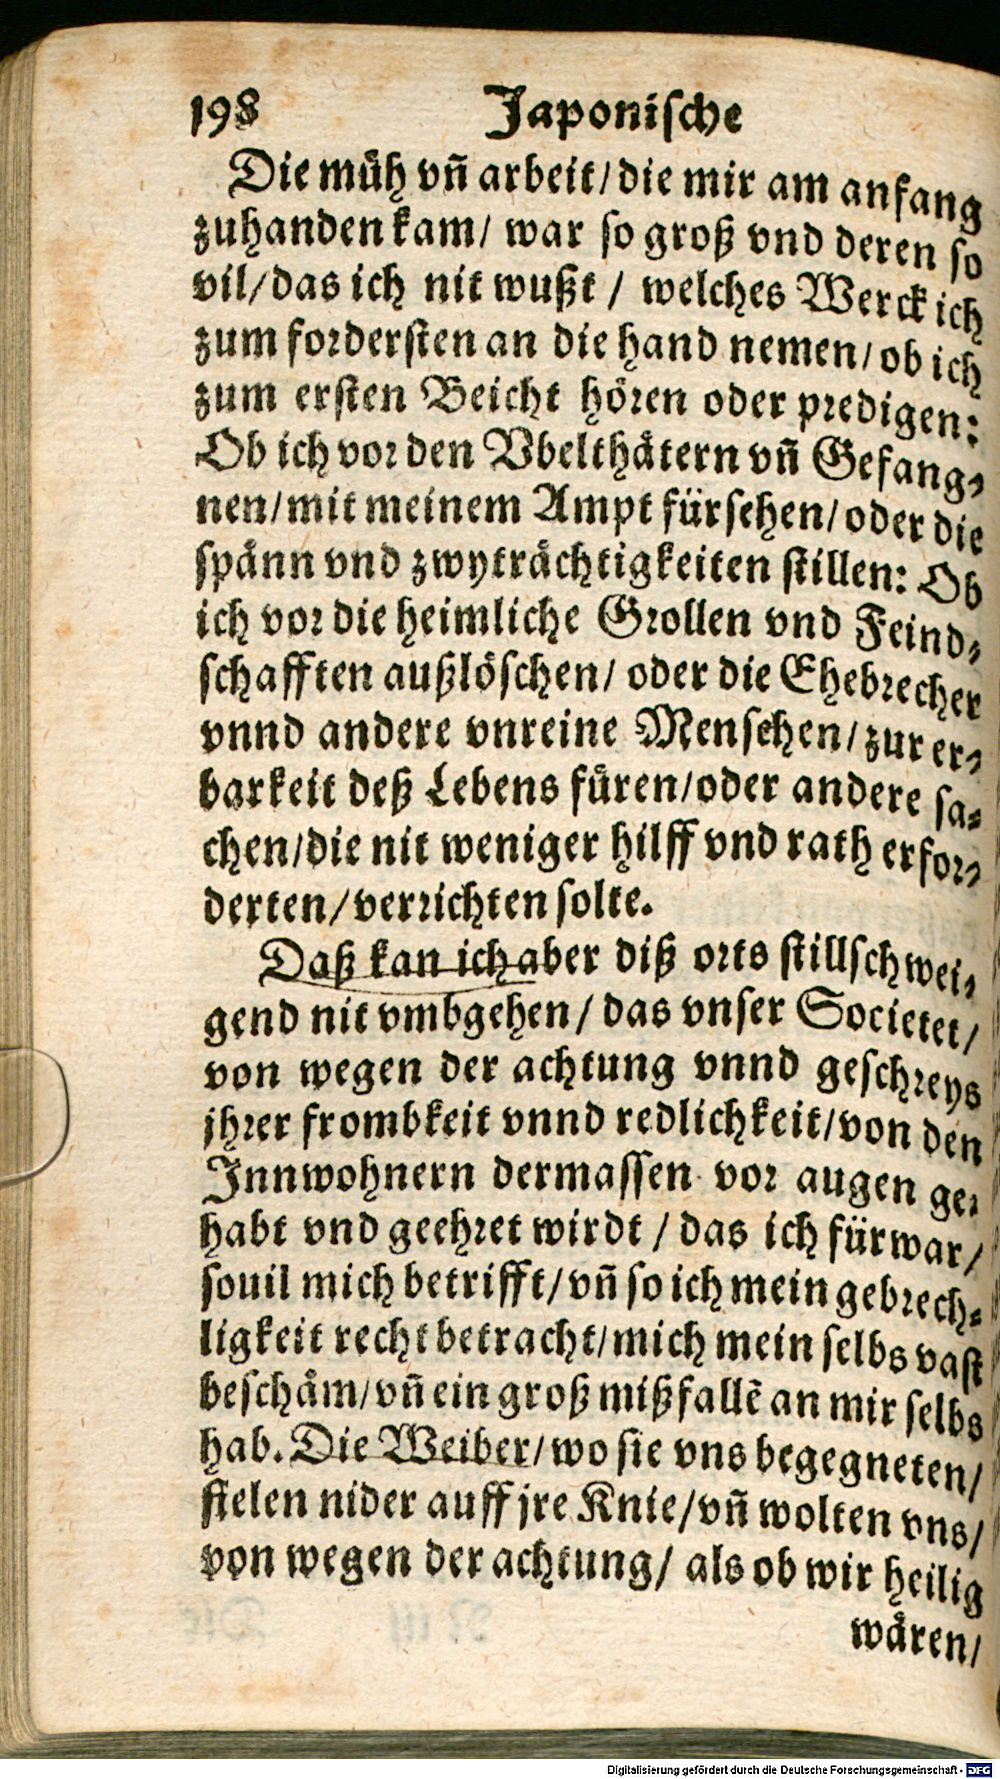 198 Japonische
Die müh vñ arbeit/die mir am anfang
zuhanden kam/ war so groß vnd deren so
vil/das ich nit wußt / welches Werck ich
zum fordersten an die hand nemen/ob ich
zum ersten Beicht hören oder predigen:
Ob ich vor den Vbelthätern vñ Gefang-
nen/mit meinem Ampt fürsehen/oder die
spänn vnd zwyträchtigkeiten stillen: Ob
ich vor die heimliche Grollen vnd Feind-
schafften außlöschen/ oder die Ehebrecher
vnnd andere vnreine Menschen/zur er-
barkeit deß Lebens füren/oder andere sa-
chen/die nit weniger hilff vnd rath erfor-
derten/verrichten solte.
Daß kan ich aber diß orts stillschwei-
gend nit vmbgehen/ das vnser Societet/
von wegen der achtung vnnd geschreys
jhrer frombkeit vnnd redlichkeit/von den
Innwohnern dermassen vor augen ge-
habt vnd geehret wirdt / das ich fürwar/
souil mich betrifft/vñ so ich mein gebrech-
ligkeit recht betracht/mich mein selbs vast
beschäm/vñ ein groß mißfallẽ an mir selbs
hab. Die Weiber/wo sie vns begegneten/
fielen nider auff jre Knie/vñ wolten vns/
von wegen der achtung/ als ob wir heilig
wären/
Digitalisierung gefördert durch die Deutsche Forschungsgemeinschaft - DFG